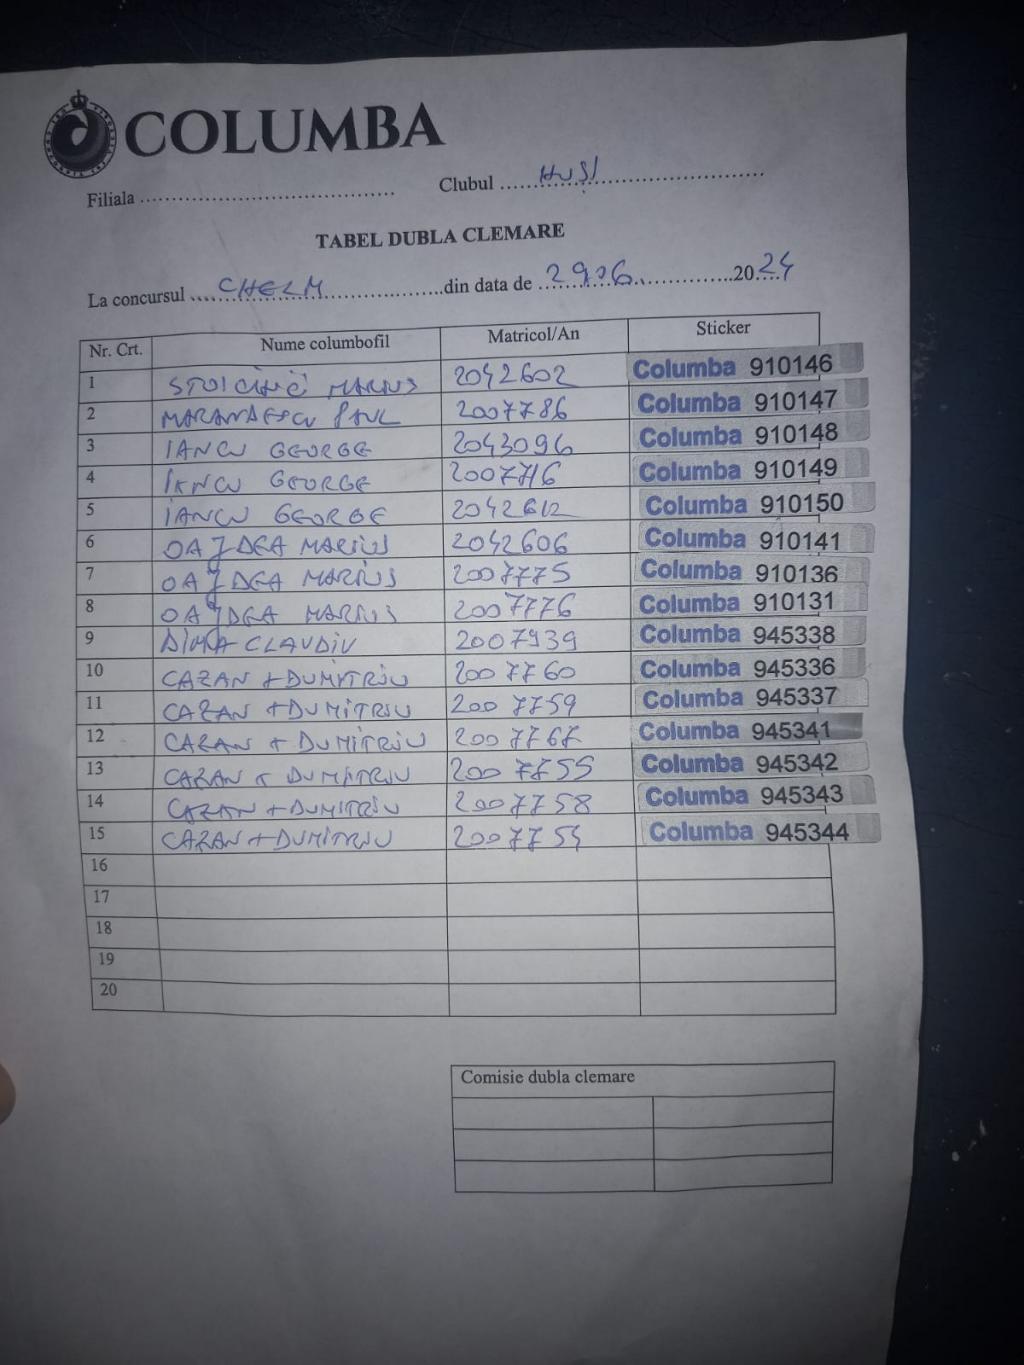 COLUMBA
Filiala ........................................ Clubul ....HUȘI..............................
TABEL DUBLA CLEMARE
La concursul ....CHELM........................din data de ...29.06...............2024
Nr. Crt. Nume columbofil Matricol/An Sticker
1 MARIUS 2042602 Columba 910146
2 MARANDESCU PAUL 2007786 Columba 910147
3 IANCU GEORGE 2043096 Columba 910148
4 IANCU GEORGE 2007716 Columba 910149
5 IANCU GEORGE 2042612 Columba 910150
6 OAJDEA MARIUS 2042606 Columba 910141
7 OAJDEA MARIUS 2007775 Columba 910136
8 OAJDEA MARIUS 2007776 Columba 910131
9 DIMA CLAUDIU 2007939 Columba 945338
10 CAZAN + DUMITRIU 2007760 Columba 945336
11 CAZAN + DUMITRIU 2007759 Columba 945337
12 CAZAN + DUMITRIU 2007767 Columba 945341
13 CAZAN + DUMITRIU 2007755 Columba 945342
14 CAZAN + DUMITRIU 2007758 Columba 945343
15 CAZAN + DUMITRIU 2007754 Columba 945344
16
17
18
19
20
Comisie dubla clemare